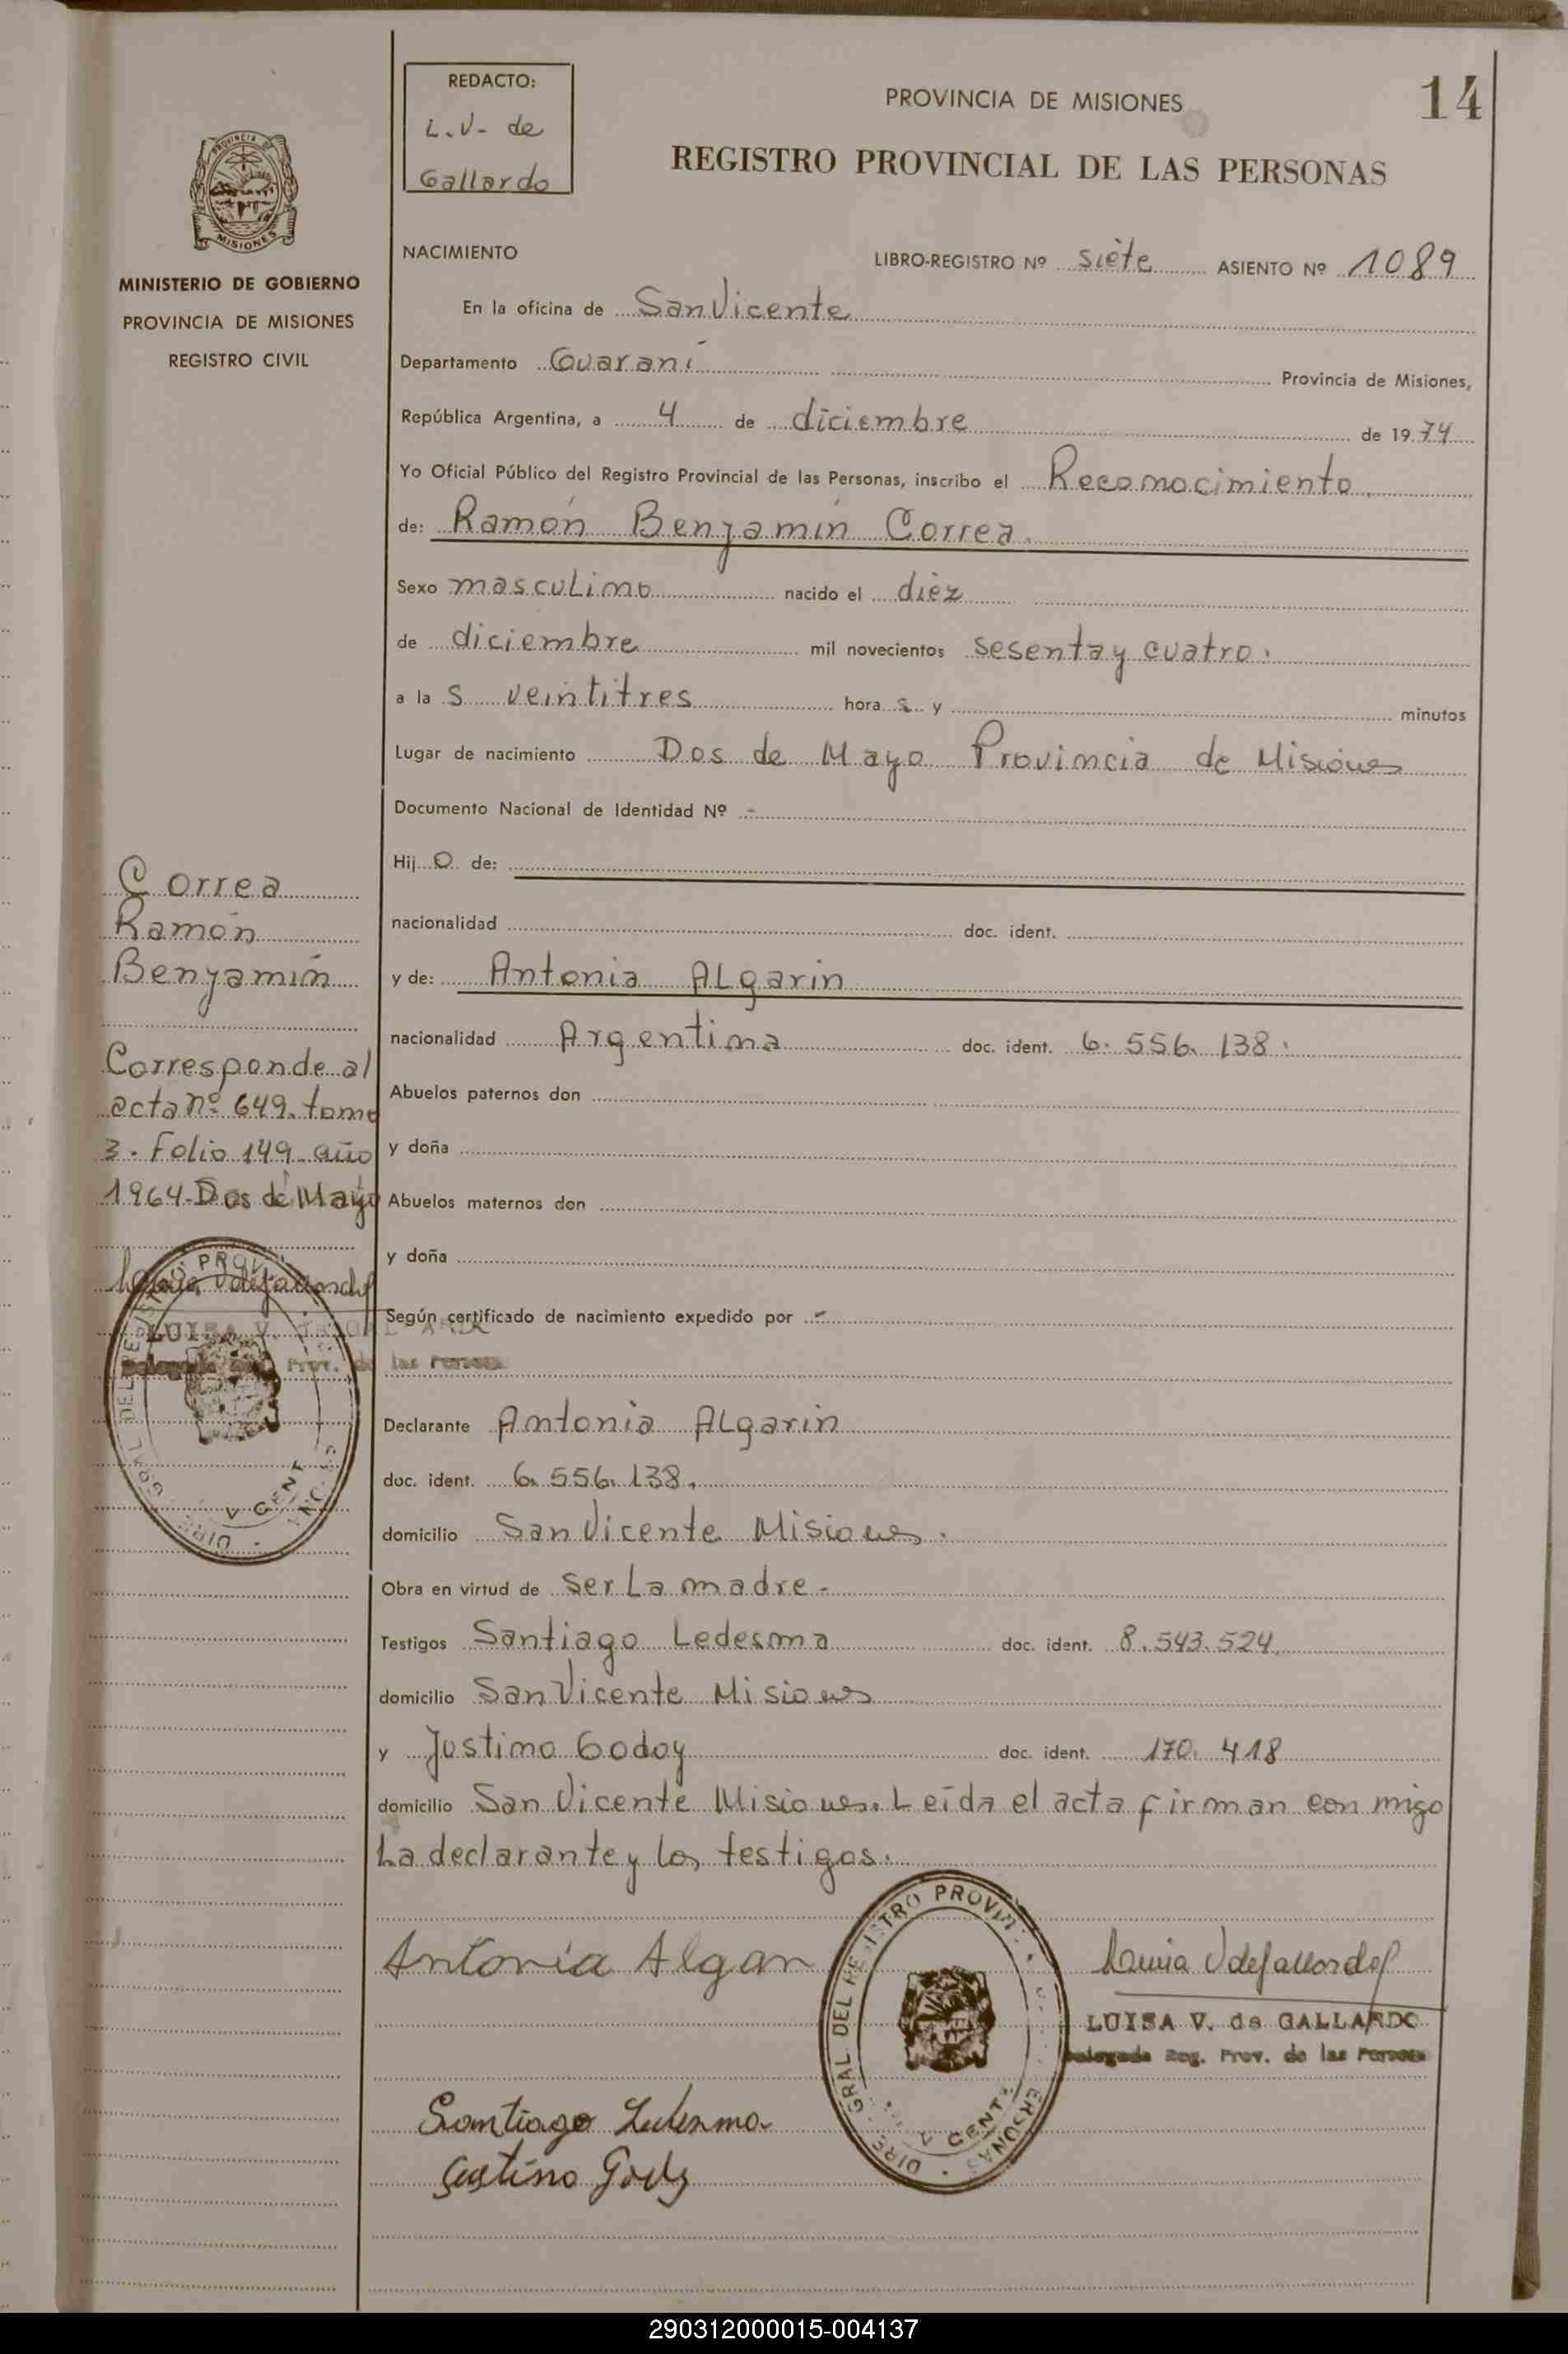 REDACTO:
L.V. de
Gallardo
PROVINCIA DE MISIONES
14
REGISTRO PROVINCIAL DE LAS PERSONAS
MISIONES
MINISTERIO DE GOBIERNO
PROVINCIA DE MISIONES
REGISTRO CIVIL
NACIMIENTO
LIBRO-REGISTRO Nº siete ASIENTO Nº 1089
En la oficina de San Vicente
Departamento Guaraní Provincia de Misiones,
República Argentina, a 4 de diciembre de 1974
Yo Oficial Público del Registro Provincial de las Personas, inscribo el Reconocimiento
de: Ramón Benjamín Correa.
Sexo masculino nacido el diez
de diciembre mil novecientos sesenta y cuatro.
a la s veintitres hora s y minutos
Lugar de nacimiento Dos de Mayo Provincia de Misiones
Documento Nacional de Identidad Nº -
Hij o de:
nacionalidad doc. ident.
y de: Antonia Algarin
nacionalidad Argentina doc. ident. 6.556.138.
Abuelos paternos don
y doña
Abuelos maternos don
y doña
Según certificado de nacimiento expedido por -
Declarante Antonia Algarin
doc. ident. 6.556.138.
domicilio San Vicente Misiones.
Obra en virtud de ser La madre.
Testigos Santiago Ledesma doc. ident. 8.543.524.
domicilio San Vicente Misiones
y Justino Godoy doc. ident. 170.418
domicilio San Vicente Misiones. Leída el acta firman con migo
La declarante y los testigos.
Correa
Ramón
Benjamín
Corresponde al
acta nº 649. tomo
3. Folio 149. año
1964. Dos de Mayo
LUISA V. de
Prov. de las Personas
Antonia Algarin
LUISA V. de GALLARDO
Delegada Reg. Prov. de las Personas
Santiago Ledesma
Justino Godoy
290312000015-004137